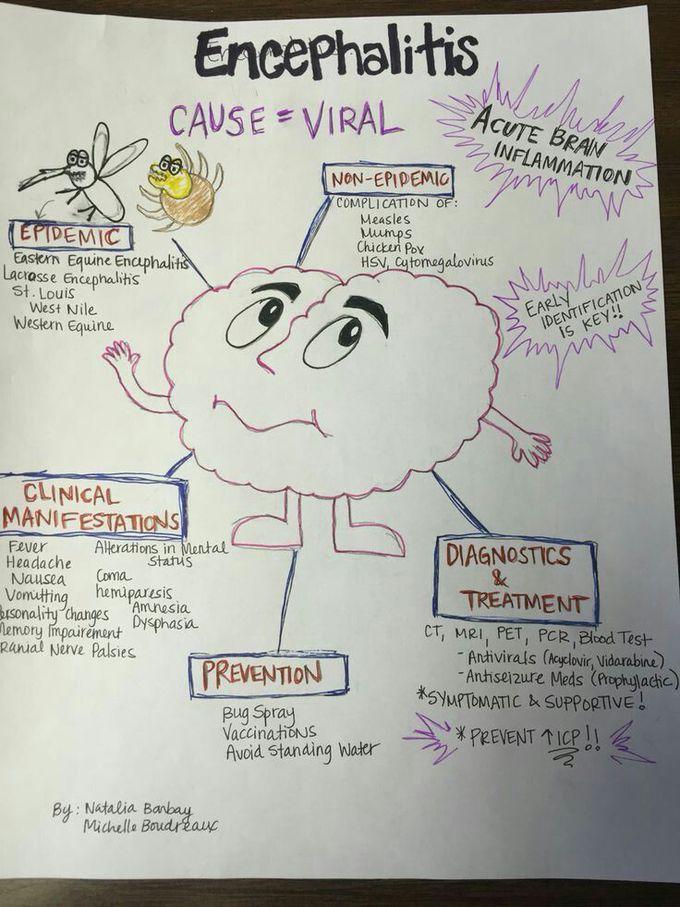 Encephalitis
CAUSE = VIRAL
ACUTE BRAIN
INFLAMMATION
EPIDEMIC
Eastern Equine Encephalitis
Lacrosse Encephalitis
St. Louis
West Nile
Western Equine
NON-EPIDEMIC
COMPLICATION OF:
Measles
Mumps
Chicken Pox
HSV, Cytomegalovirus
EARLY
IDENTIFICATION
IS KEY!!
CLINICAL
MANIFESTATIONS
Fever
Headache
Nausea
Vomitting
ersonality changes
emory Impairement
ranial Nerve Palsies
Alterations in Mental
Status
Coma
hemiparesis
Amnesia
Dysphasia
PREVENTION
Bug Spray
Vaccinations
Avoid Standing Water
DIAGNOSTICS
&
TREATMENT
CT, MRI, PET, PCR, Blood Test
- Antivirals (Acyclovir, Vidarabine)
- Antiseizure Meds (Prophylactic)
*SYMPTOMATIC & SUPPORTIVE!
* PREVENT ↑ICP!!
By: Natalia Barbay
Michelle Boudreaux